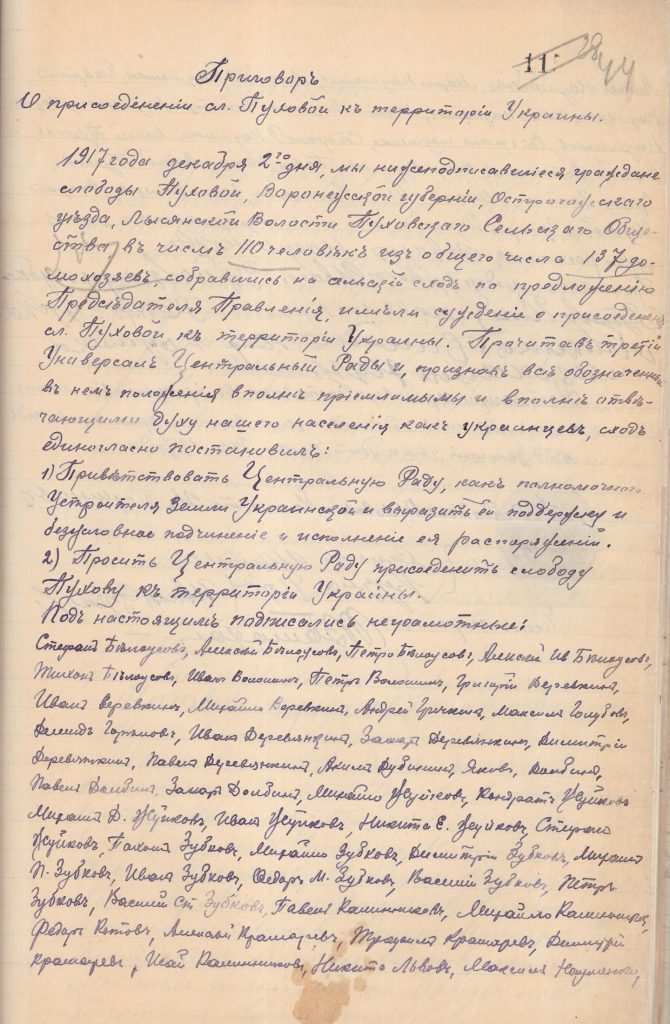 11
28
44
Приговоръ
О присоединеніи сл. Пуховой къ территоріи Украины.
1917 года декабря 2го дня, мы нижеподписавшіеся граждане
слободы Пуховой, Воронежской губерніи, Острогожскаго
уѣзда, Лысянской Волости Пуховскаго Сельскаго Обще-
ства, въ числѣ 110 человѣкъ изъ общего числа 137 до-
мохозяевъ, собравшись на сельскій сходъ по предложенію
Предсѣдателя Правленія, имѣли сужденіе о присоединеніи
сл. Пуховой къ территоріи Украины. Прочитавъ третій
Универсалъ Центральный Рады и, признавъ всѣ обозначенныя
въ немъ положенія вполнѣ пріемлимыми и вполнѣ отвѣ-
чающими духу нашего населенія какъ украинцевъ, сходъ
единогласно постановилъ:
1) Привѣтствовать Центральную Раду, какъ полномочнаго
Устроителя Земли Украинской и выразить ей поддержку и
безусловное подчиненіе и исполненіе ея распоряженій.
2) Просить Центральную Раду присоеденить слободу
Пухову къ территоріи Украины.
Подъ настоящимъ подписались неграмотные:
Стефанъ Бѣлоусовъ, Алексѣй Бѣлоусовъ, Петро Бѣлоусовъ, Алексѣй Ив Бѣлоусовъ,
Тихонъ Бѣлоусовъ, Иванъ Волошинъ, Петръ Волошинъ, Григорій Веревкинъ,
Иванъ Веревкинъ, Михайло Веревкинъ, Андрей Гричкинъ, Максимъ Голубовъ,
Иванъ Деревянкинъ, Захаръ Деревянкинъ, Димитрій
Деревянкинъ, Павелъ Деревянкинъ, Акимъ Дубининъ, Яковъ Долбинъ,
Павелъ Долбинъ, Захаръ Долбинъ, Михайло Жуйковъ, Кондратъ Жуйковъ
Михаилъ Д. Жуйковъ, Иванъ Жуйковъ, Никита Е. Жуйковъ, Стефанъ
Жуйковъ, Зубковъ, Михайло Зубковъ, Димитрій Зубковъ, Михаилъ
П. Зубковъ, Иванъ Зубковъ, Федоръ М. Зубковъ, Василій Зубковъ, Петръ
Зубковъ, Василій Ст Зубковъ, Павелъ Калинниковъ, Михайло Калинниковъ,
Федоръ Котовъ, Алексѣй Крамаревъ, Крамаревъ, Димитрій
Крамаревъ, Исай Калинниковъ, Никита Львовъ, Максимъ